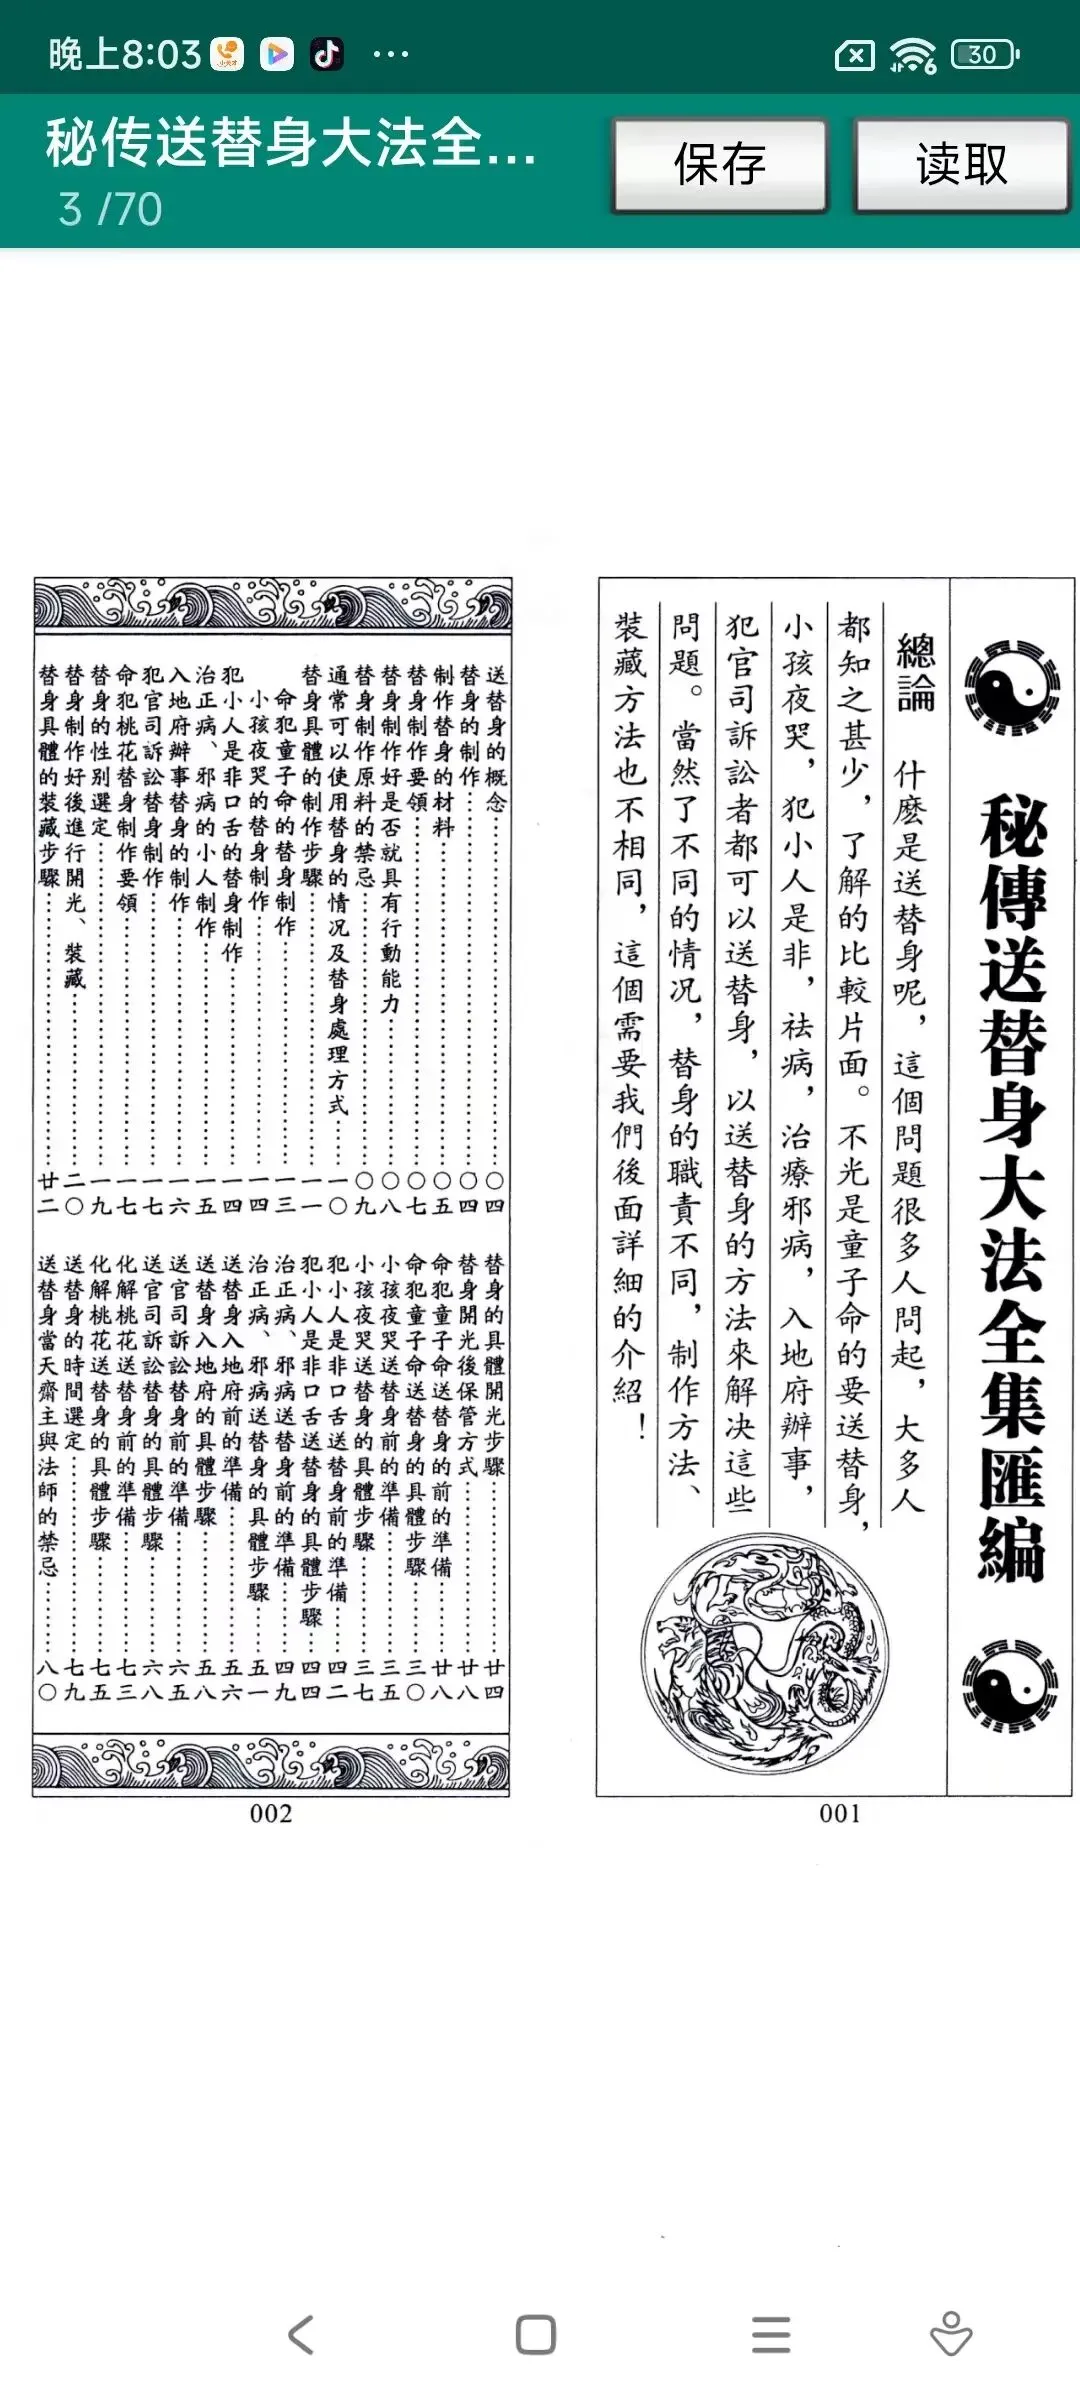 晚上8:03
小天才
...
6
30
秘传送替身大法全...
3 /70
保存
读取
秘傳送替身大法全集匯編
總論
什麽是送替身呢，這個問題很多人問起，大多人
都知之甚少，了解的比較片面。不光是童子命的要送替身，
小孩夜哭，犯小人是非，祛病，治療邪病，入地府辦事，
犯官司訴訟者都可以送替身，以送替身的方法來解决這些
問題。當然了不同的情况，替身的職責不同，制作方法、
裝藏方法也不相同，這個需要我們後面詳細的介紹！
001
送替身的概念……〇四
替身的制作……〇四
制作替身的材料……〇五
替身制作要領……〇七
替身制作好是否就具有行動能力……〇八
替身制作原料的禁忌……〇九
通常可以使用替身的情况及替身處理方式……一〇
替身具體的制作步驟……一一
命犯童子命的替身制作……一三
小孩夜哭的替身制作……一四
犯小人是非口舌的替身制作……一四
治正病、邪病的小人制作……一五
入地府辦事替身的制作……一六
犯官司訴訟替身制作……一七
命犯桃花替身制作要領……一七
替身的性别選定……一九
替身制作好後進行開光、裝藏……二〇
替身具體的裝藏步驟……廿二
替身的具體開光步驟……廿四
替身開光後保管方式……廿八
命犯童子命送替身的前的準備……廿八
命犯童子命送替身的具體步驟……三〇
小孩夜哭送替身前的準備……三五
小孩夜哭送替身的具體步驟……三七
犯小人是非口舌送替身前的準備……四二
犯小人是非口舌送替身的具體步驟……四四
治正病、邪病送替身前的準備……四九
治正病、邪病送替身的具體步驟……五一
送替身入地府前的準備……五六
送替身入地府的具體步驟……五八
送官司訴訟替身前的準備……六五
送官司訴訟替身的具體步驟……六八
化解桃花送替身前的準備……七三
化解桃花送替身的具體步驟……七五
送替身的時間選定……七九
送替身當天齋主與法師的禁忌……八〇
002